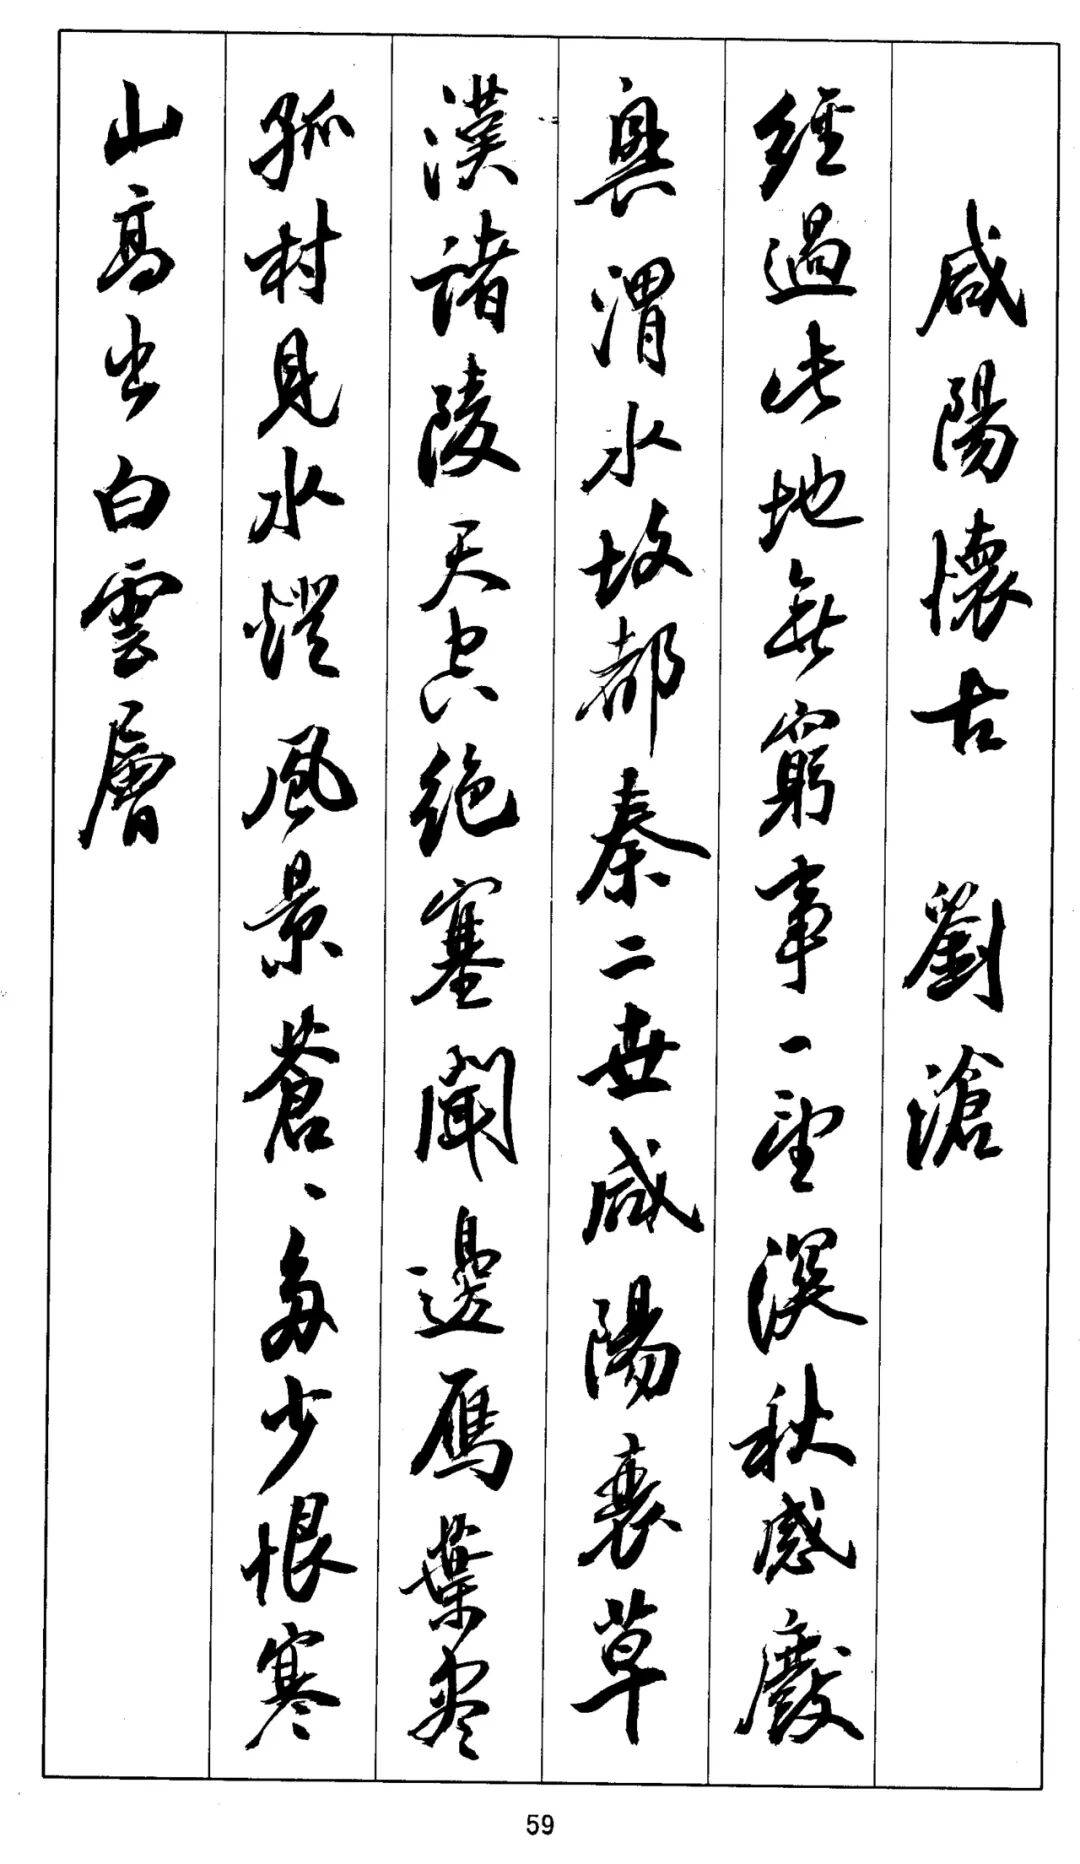 咸陽懷古 劉滄
經過此地無窮事一望深秋感廢
興渭水故都秦二世咸陽衰草
漢諸陵天空絶塞聞邊鴈葉盡
孤村見水燈風景蒼、多少恨寒
山高出白雲層
59